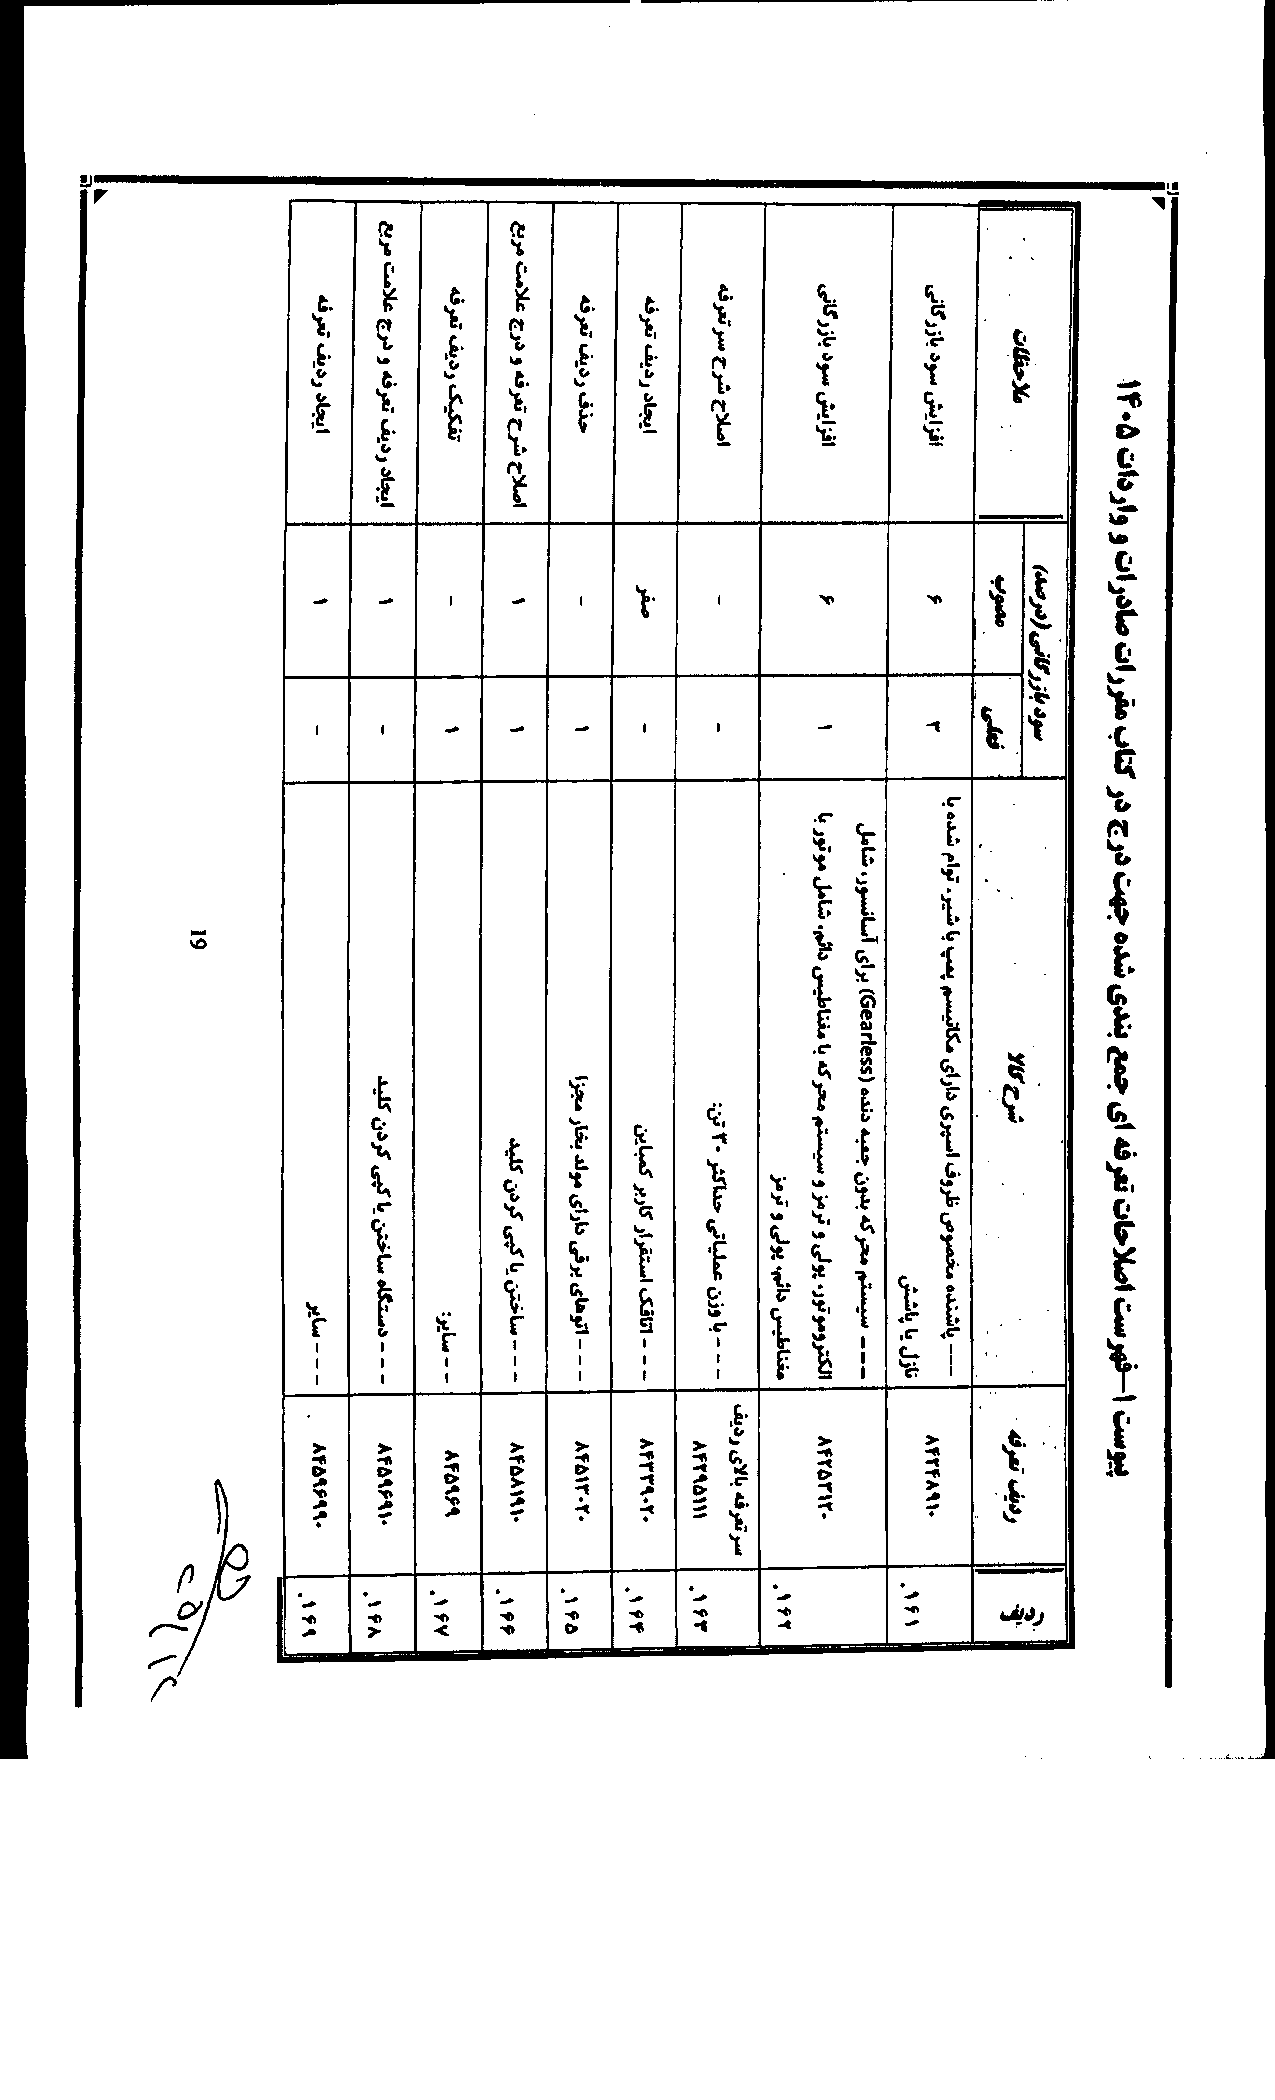 پیوست ۱- فهرست اصلاحات تعرفه ای جمع بندی شده جهت درج در کتاب مقررات صادرات و واردات ۱۴۰۵
ردیف
ردیف تعرفه
شرح کالا
سود بازرگانی (درصد)
فعلی
مصوب
ملاحظات
۱۶۱.
۸۴۲۴۸۹۱۰
--- پاشنده مخصوص ظروف اسپری دارای مکانیسم پمپ با شیر، توام شده با
نازل یا پاشش
۳
۶
افزایش سود بازرگانی
۱۶۲.
۸۴۲۵۳۱۲۰
--- سیستم محرکه بدون جعبه دنده (Gearless) برای آسانسور، شامل
الکتروموتور، پولی و ترمز و سیستم محرکه با مغناطیس دائم، شامل موتور با
مغناطیس دائم، پولی و ترمز
۱
۶
افزایش سود بازرگانی
۱۶۳.
سر تعرفه بالای ردیف
۸۴۲۹۵۱۱۱
--- با وزن عملیاتی حداکثر ۳۰ تن:
-
-
اصلاح شرح سر تعرفه
۱۶۴.
۸۴۳۳۹۰۲۰
--- اتاقک استقرار کاربر کمباین
-
صفر
ایجاد ردیف تعرفه
۱۶۵.
۸۴۵۱۳۰۲۰
--- اتوهای برقی دارای مولد بخار مجزا
۱
-
حذف ردیف تعرفه
۱۶۶.
۸۴۵۸۱۹۱۰
--- ساختن یا کپی کردن کلید
۱
۱
اصلاح شرح تعرفه و درج علامت مربع
۱۶۷.
۸۴۵۹۶۹
-- سایر:
۱
-
تفکیک ردیف تعرفه
۱۶۸.
۸۴۵۹۶۹۱۰
--- دستگاه ساختن یا کپی کردن کلید
-
۱
ایجاد ردیف تعرفه و درج علامت مربع
۱۶۹.
۸۴۵۹۶۹۹۰
--- سایر
-
۱
ایجاد ردیف تعرفه
19